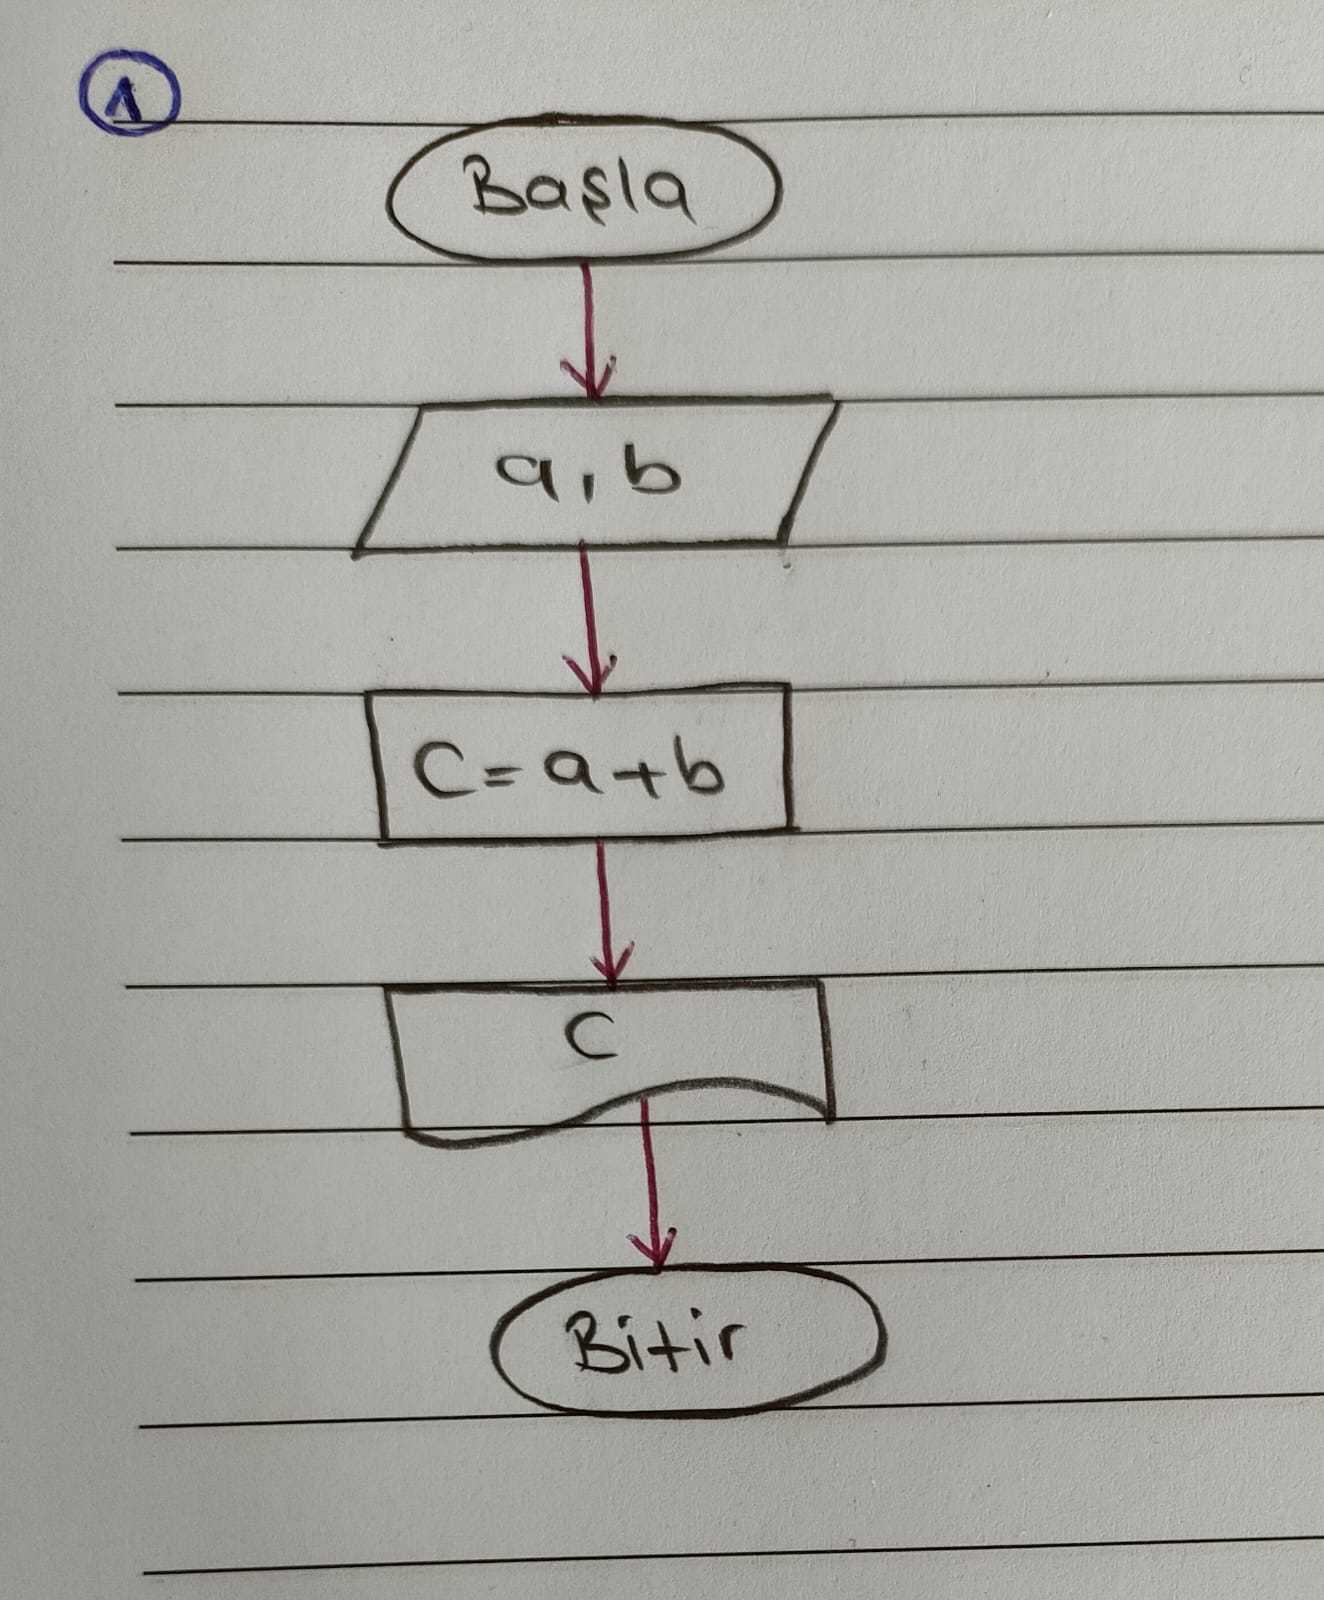 1
Başla
a, b
C = a + b
C
Bitir